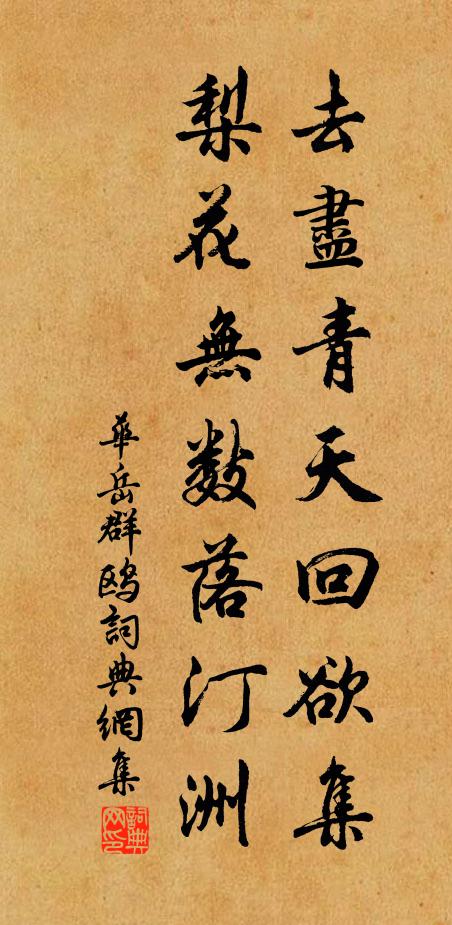 去盡青天回欲集
梨花無数落汀洲
華岳群鸥詞典網集
詞典
网印